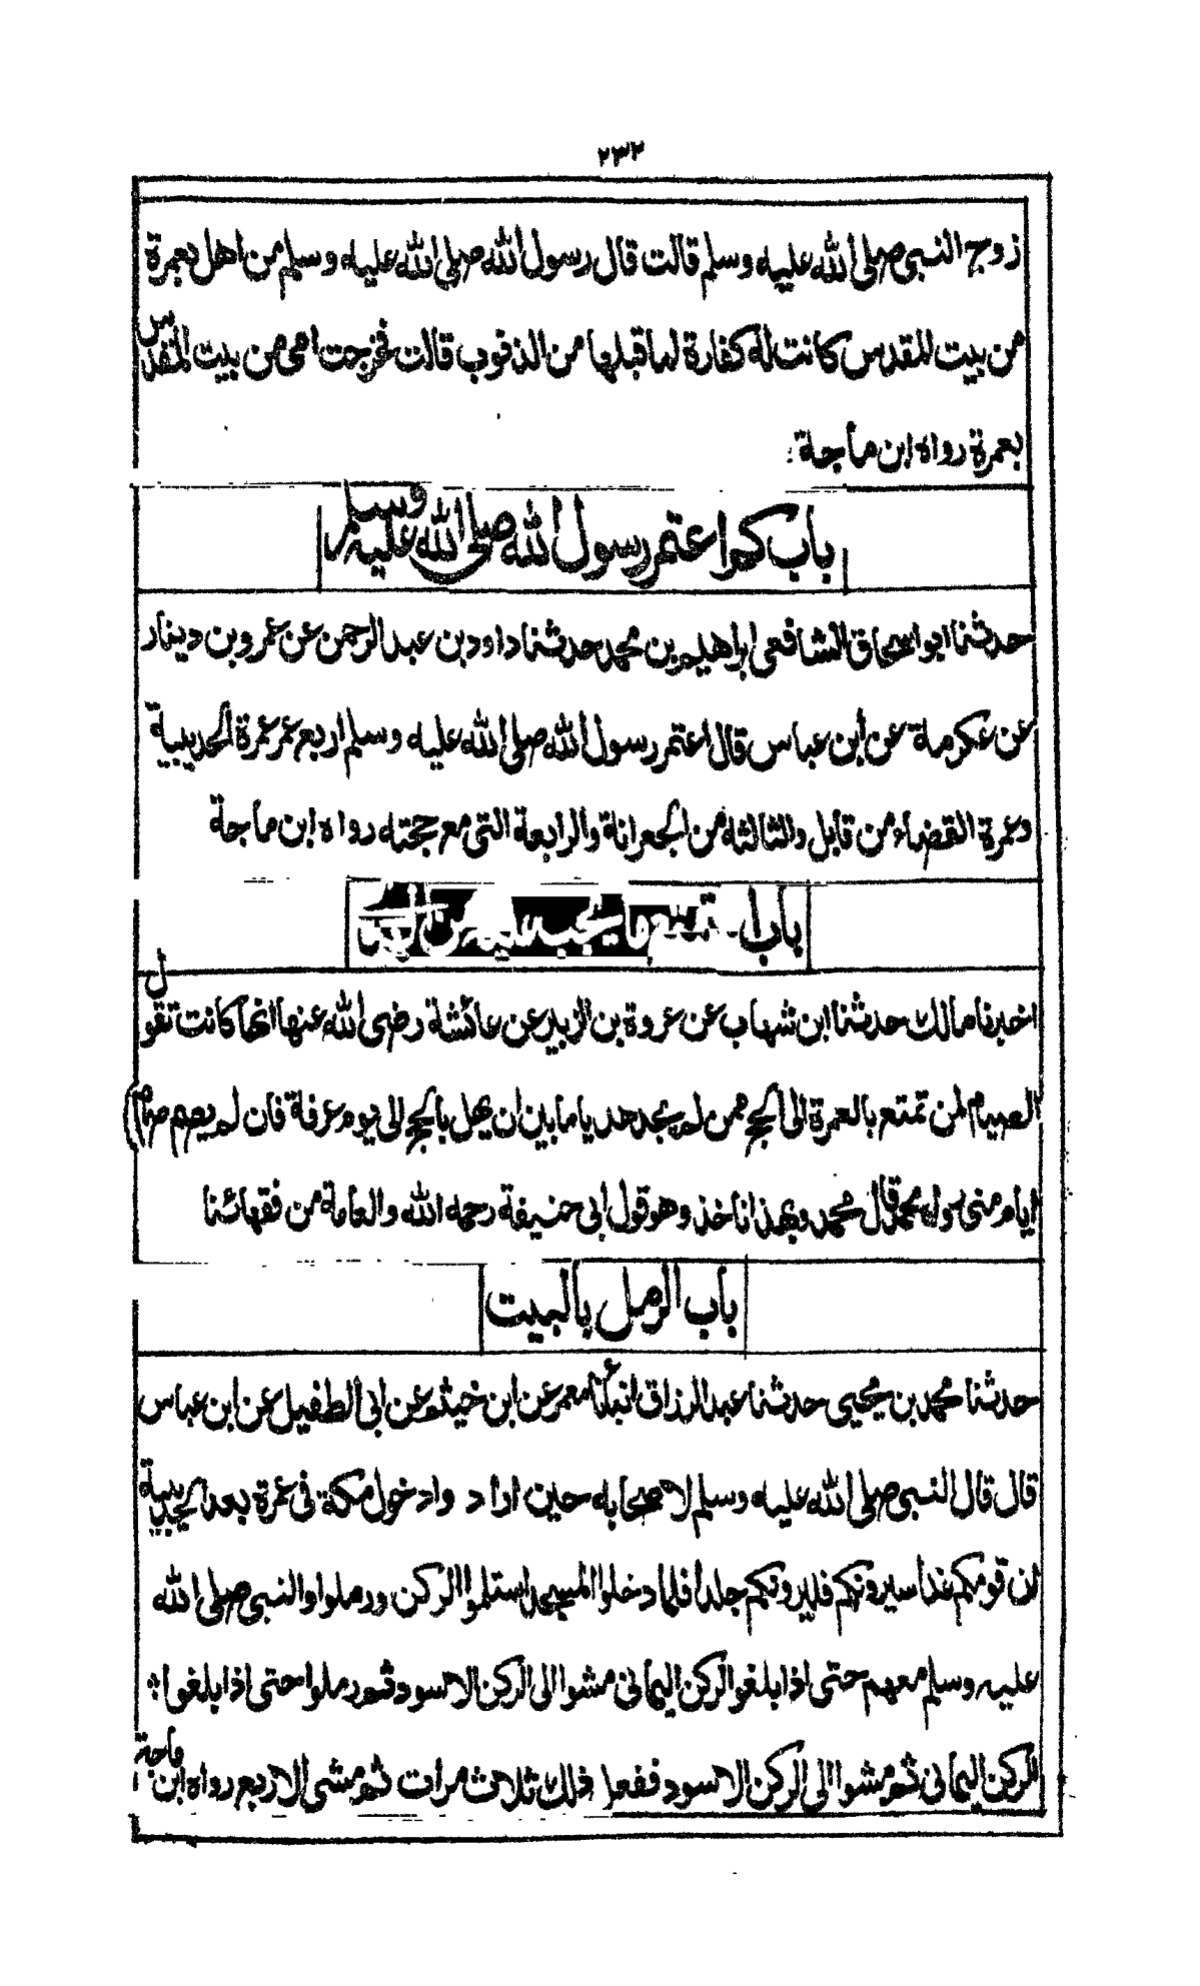 ٢٣٢
زوج النبي صلى الله عليه وسلم قالت قال رسول الله صلى الله عليه وسلم من اهل بعمرة
من بيت المقدس كانت له كفارة لما قبلها من الذنوب قالت فخرجت امي من بيت المقدس
بعمرة رواه ابن ماجة
باب كم اعتمر رسول الله صلى الله عليه وسلم
حدثنا ابو اسحاق الشافعي ابراهيم بن محمد حدثنا داود بن عبد الرحمن عن عمرو بن دينار
عن عكرمة عن ابن عباس قال اعتمر رسول الله صلى الله عليه وسلم اربع عمر عمرة الحديبية
وعمرة القضاء من قابل والثالثة من الجعرانة والرابعة التي مع حجته رواه ابن ماجة
باب المتمتع ما يجب عليه من
اخبرنا مالك حدثنا ابن شهاب عن عروة بن الزبير عن عائشة رضى الله عنها انها كانت تقول
الصيام لمن تمتع بالعمرة الى الحج ممن لم يجد هديا ما بين ان يهل بالحج الى يوم عرفة فان لم يصم صام
ايام منى قال محمد وبهذا ناخذ وهو قول ابى حنيفة رحمه الله والعامة من فقهائنا
باب الرمل بالبيت
حدثنا محمد بن يحيى حدثنا عبد الرزاق انبأنا معمر عن ابن خيثم عن ابى الطفيل عن ابن عباس
قال قال النبي صلى الله عليه وسلم لاصحابه حين ارادوا دخول مكة فى عمرة بعد الحديبية
ان قومكم غدا سيرونكم فليرونكم جلدا فلما دخلوا المسجد استلموا الركن ورملوا والنبي صلى الله
عليه وسلم معهم حتى اذا بلغوا الركن اليمانى مشوا الى الركن الاسود ثم رملوا حتى اذا بلغوا
الركن اليمانى ثم مشوا الى الركن الاسود ففعل ذلك ثلاث مرات ثم مشى الاربع رواه ابن ماجة